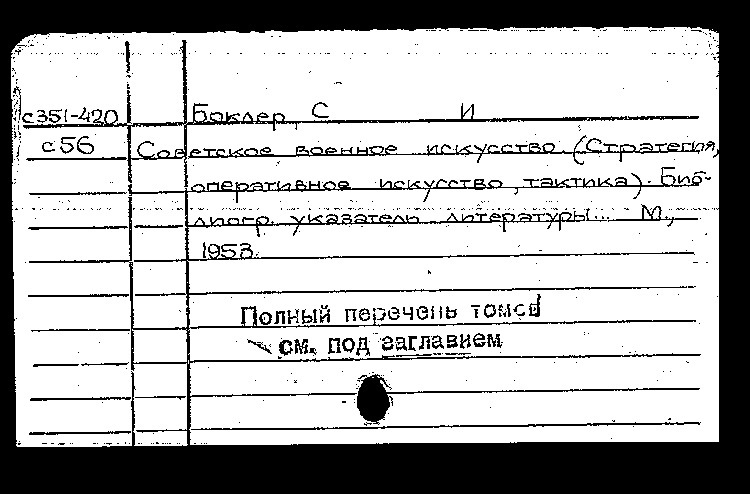 с351-420 Боклер, С И
с56 Советское военное искусство. (Стратегия,
оперативное искусство, тактика). Биб-
лиогр. указатель литературы... М.,
1953.
Полный перечень томов
см. под заглавием